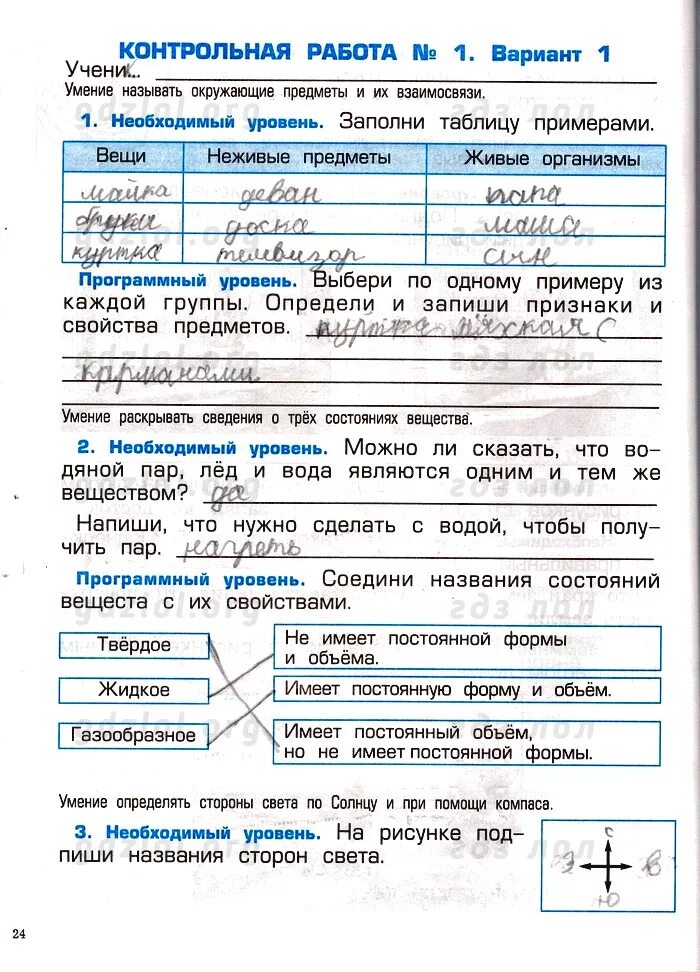 КОНТРОЛЬНАЯ РАБОТА № 1. Вариант 1
Учени...
Умение называть окружающие предметы и их взаимосвязи.
1. Необходимый уровень. Заполни таблицу примерами.
Вещи Неживые предметы Живые организмы
майка деван папа
брюки доска маша
куртка телевизор сын
Программный уровень. Выбери по одному примеру из
каждой группы. Определи и запиши признаки и
свойства предметов. куртка мяхкая с
карманами
Умение раскрывать сведения о трёх состояниях вещества.
2. Необходимый уровень. Можно ли сказать, что во-
дяной пар, лёд и вода являются одним и тем же
веществом? да
Напиши, что нужно сделать с водой, чтобы полу-
чить пар. нагреть
Программный уровень. Соедини названия состояний
веществa с их свойствами.
Твёрдое Не имеет постоянной формы
и объёма.
Жидкое Имеет постоянную форму и объём.
Газообразное Имеет постоянный объём,
но не имеет постоянной формы.
Умение определять стороны света по Солнцу и при помощи компаса.
3. Необходимый уровень. На рисунке под-
пиши названия сторон света.
С
З В
Ю
24
gdzlol.org гдз лол